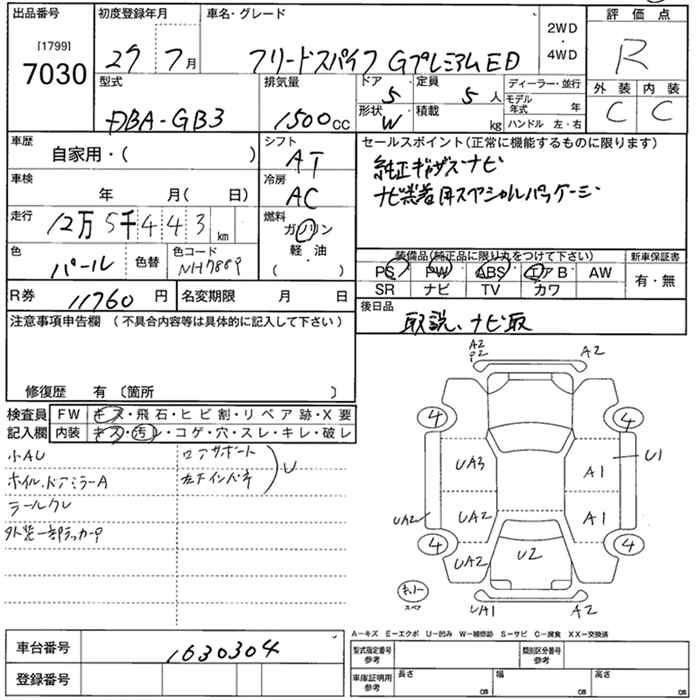 出品番号 初度登録年月 車名・グレード 評価点
[1799]
7030
27 7月 フリードスパイク GプレミアムED
2WD
・
4WD
R
型式 排気量 ドア 定員 ディーラー・並行 外装 内装
DBA-GB3 1500cc 5 5人 モデル年式 年 C C
形状 W 積載 kg ハンドル 左・右
車歴 シフト セールスポイント(正常に機能するものに限ります)
自家用・( ) AT 純正ギャザズナビ
車検 冷房 ナビ装着用スペシャルパッケージ
年 月( 日) AC
走行 12万5千443km 燃料
ガソリン
軽・油
( )
色 パール 色替 色コード NH788P
装備品(純正品に限り丸をつけて下さい) 新車保証書
PS PW ABS エアB AW 有・無
SR ナビ TV カワ
R券 11760円 名変期限 月 日 後日品
取説、ナビ取
注意事項申告欄 (不具合内容等は具体的に記入して下さい)
修復歴 有 〔箇所 〕
検査員 FW キズ・飛石・ヒビ割・リペア跡・X要
記入欄 内装 キズ・汚レ・コゲ・穴・スレ・キレ・破レ
小AU ロアサポート
ホイル、ドアミラーA 左下インパネ U
ラールクレ
外装一部タッカP
A2
P2 A2
4 4
UA3 A1 U1
UA2 UA2 A1
4 4
UA2 U2
キー
スペア
UA1 A2
A-キズ E-エクボ U-凹み W-補修跡 S-サビ C-腐食 XX-交換済
車台番号 1630304 型式指定番号参考 類別区分番号参考
登録番号 車庫証明用参考 長さ cm 幅 cm 高さ cm